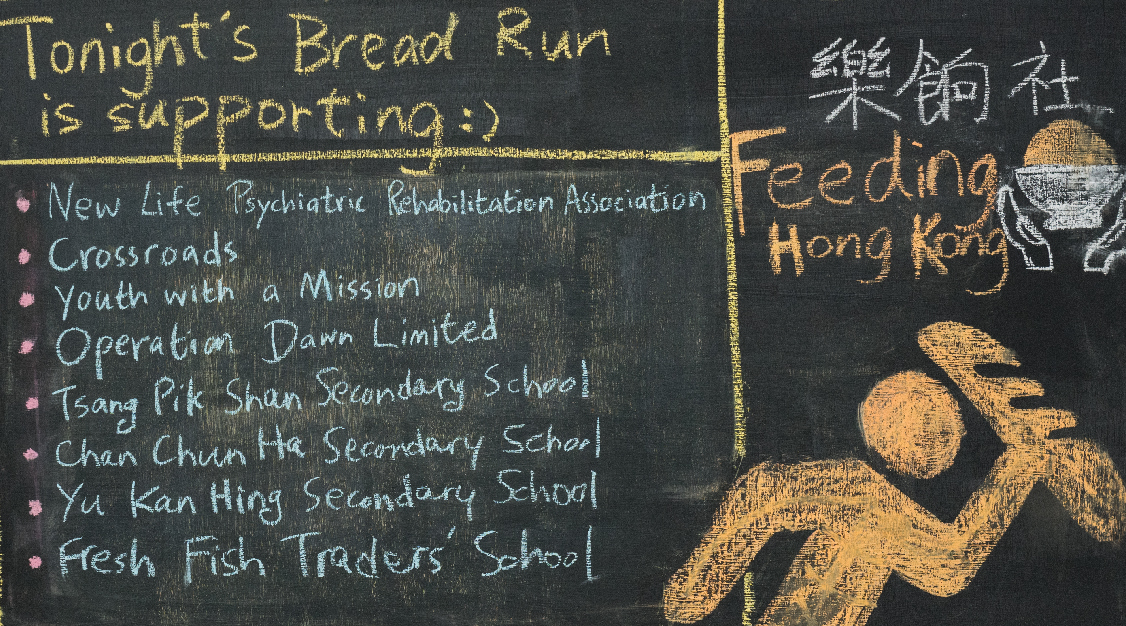 Tonight's Bread Run
is supporting :)
New Life Psychiatric Rehabilitation Association
Crossroads
Youth with a Mission
Operation Dawn Limited
Tsang Pik Shan Secondary School
Chan Chun Ha Secondary School
Yu Kan Hing Secondary School
Fresh Fish Traders' School
樂餉社
Feeding
Hong Kong